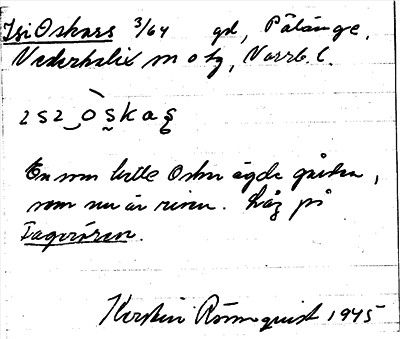 IsiOskars 3/64 gd, Pålänge,
Nederkalix sn o tg, Norrb. l.
ɪsɪ‿òs̬kaş
En som hette Oskar ägde gården,
som nu är riven. Låg på
Fagerören.
Kerstin Rönnquist 1945